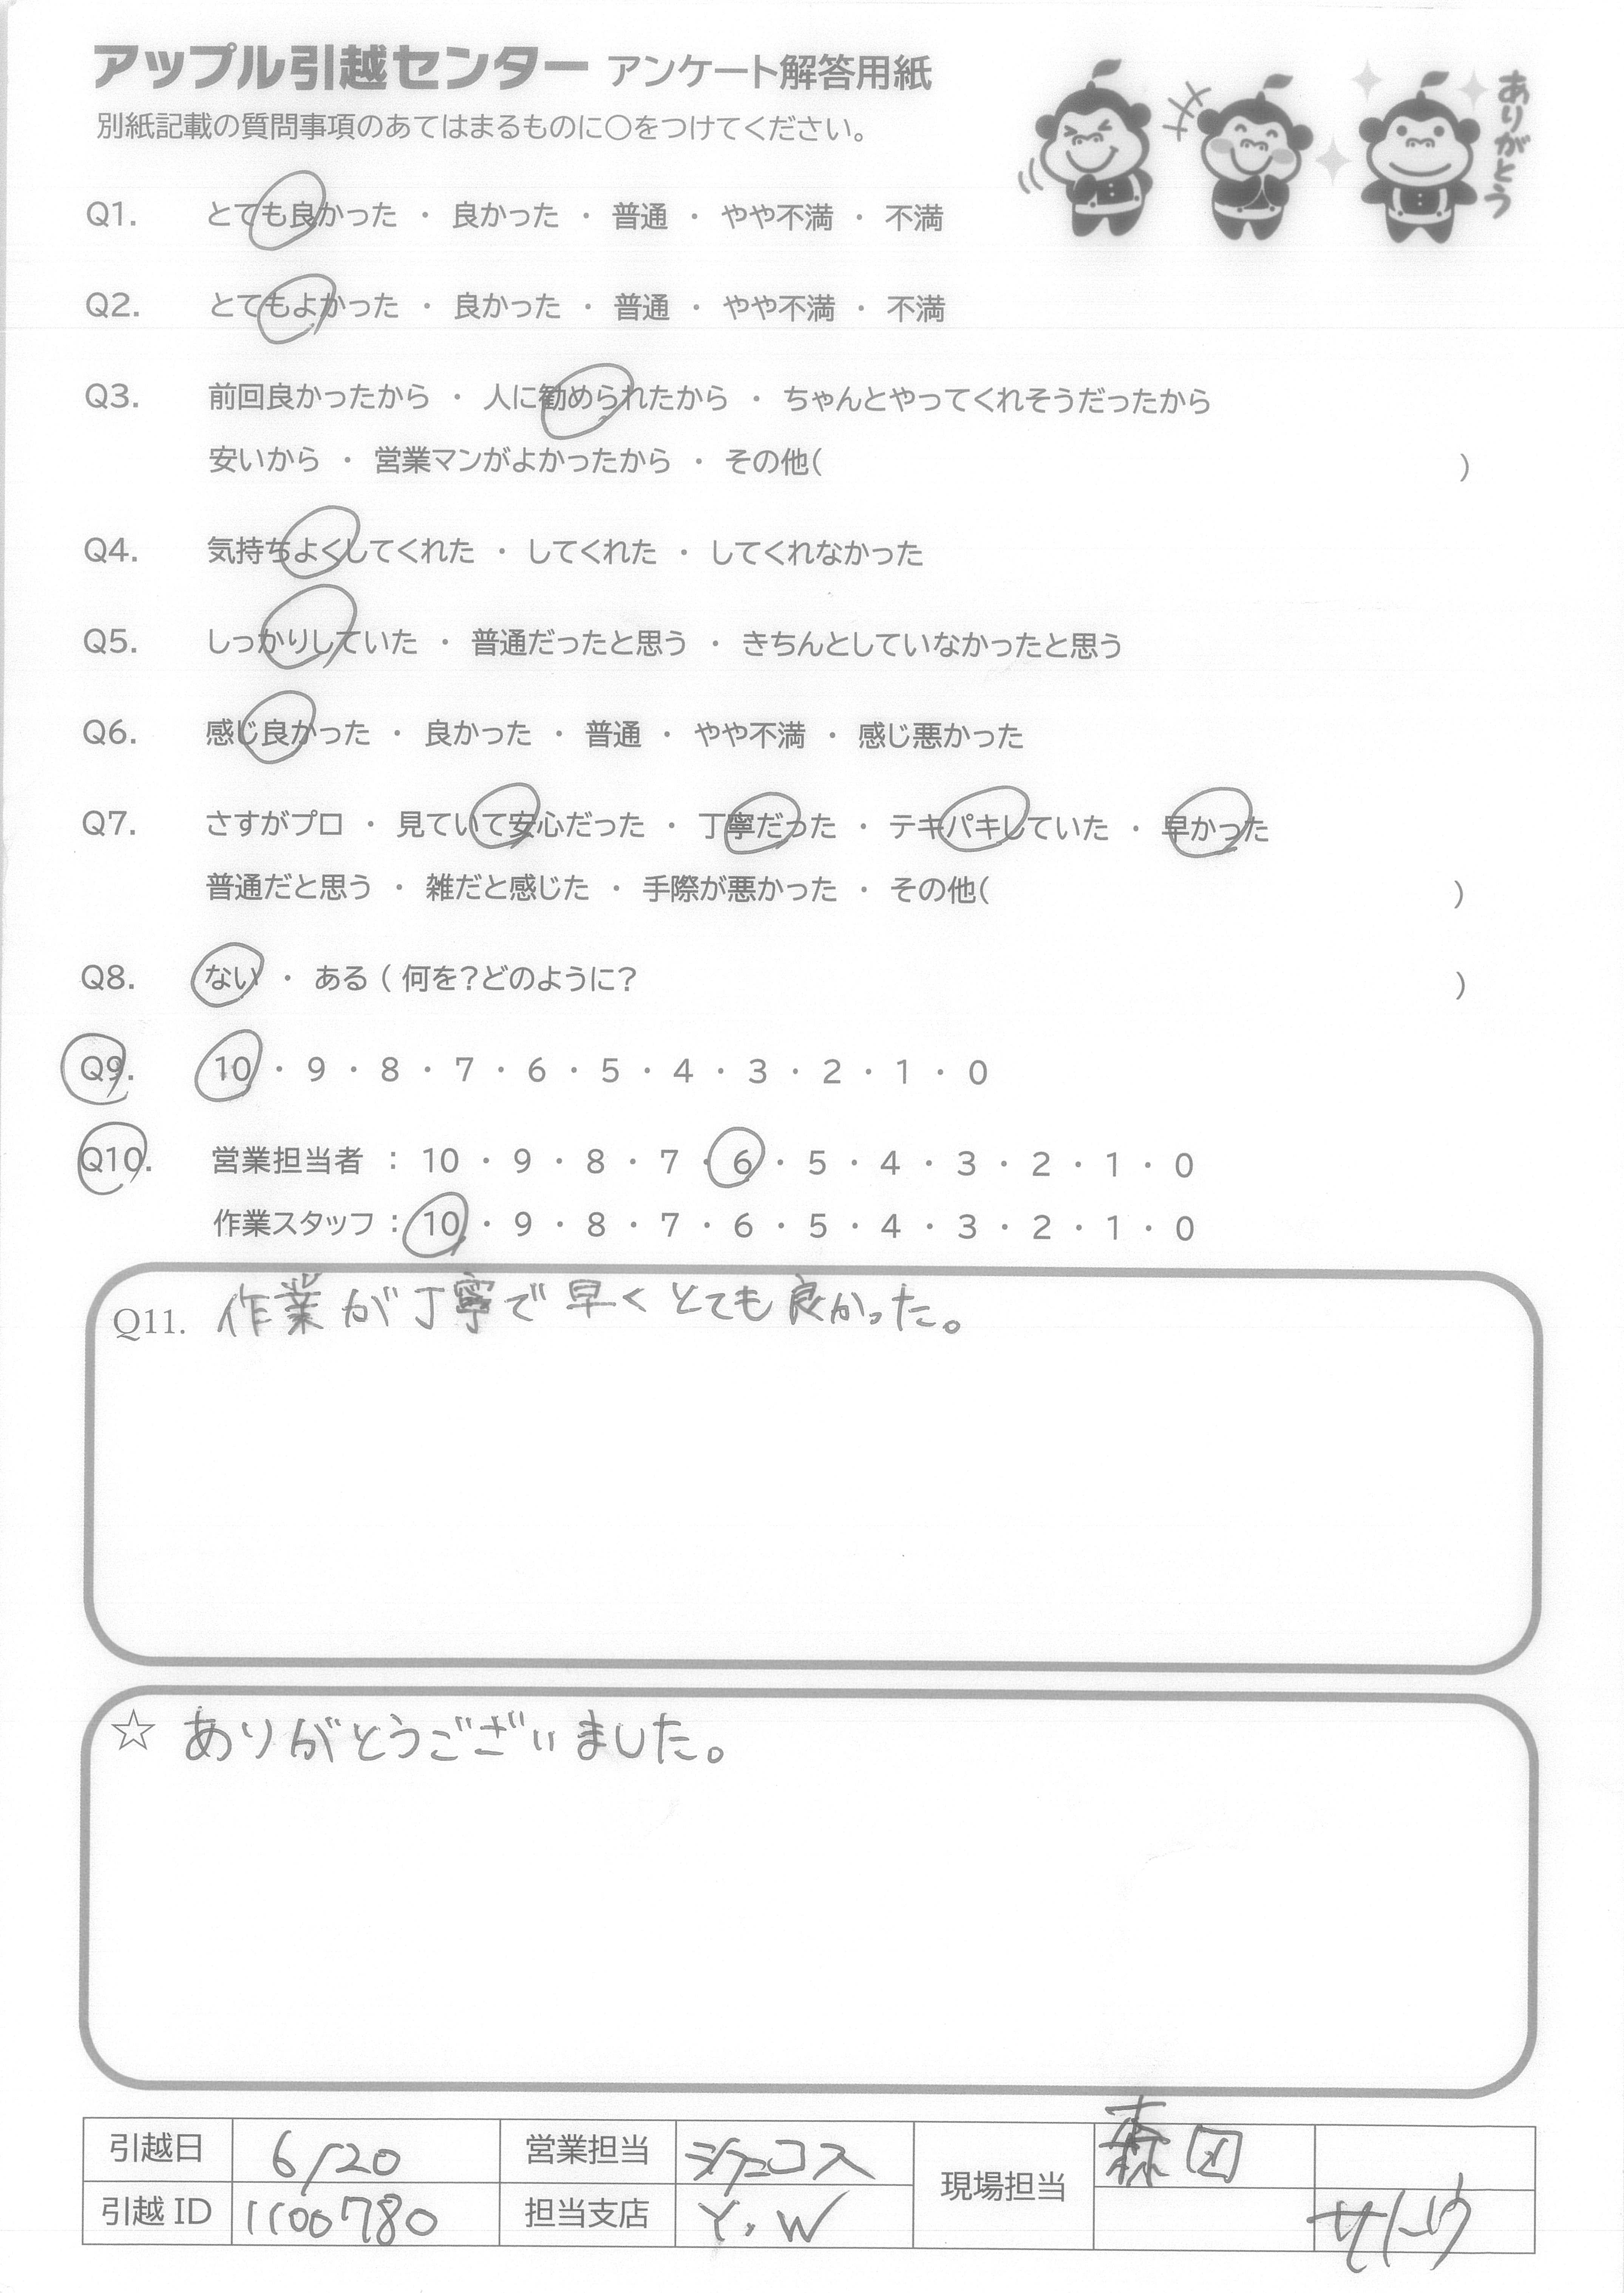 アップル引越センター アンケート解答用紙
別紙記載の質問事項のあてはまるものに○をつけてください。
ありがとう
Q1. とても良かった ・ 良かった ・ 普通 ・ やや不満 ・ 不満
Q2. とてもよかった ・ 良かった ・ 普通 ・ やや不満 ・ 不満
Q3. 前回良かったから ・ 人に勧められたから ・ ちゃんとやってくれそうだったから
安いから ・ 営業マンがよかったから ・ その他( )
Q4. 気持ちよくしてくれた ・ してくれた ・ してくれなかった
Q5. しっかりしていた ・ 普通だったと思う ・ きちんとしていなかったと思う
Q6. 感じ良かった ・ 良かった ・ 普通 ・ やや不満 ・ 感じ悪かった
Q7. さすがプロ ・ 見ていて安心だった ・ 丁寧だった ・ テキパキしていた ・ 早かった
普通だと思う ・ 雑だと感じた ・ 手際が悪かった ・ その他( )
Q8. ない ・ ある ( 何を?どのように? )
Q9. 10 ・ 9 ・ 8 ・ 7 ・ 6 ・ 5 ・ 4 ・ 3 ・ 2 ・ 1 ・ 0
Q10. 営業担当者 : 10 ・ 9 ・ 8 ・ 7 ・ 6 ・ 5 ・ 4 ・ 3 ・ 2 ・ 1 ・ 0
作業スタッフ : 10 ・ 9 ・ 8 ・ 7 ・ 6 ・ 5 ・ 4 ・ 3 ・ 2 ・ 1 ・ 0
Q11. 作業が丁寧で早くとても良かった。
☆ ありがとうございました。
引越日 6/20 営業担当 現場担当 森田
引越 ID 1100780 担当支店 Y.W サトウ